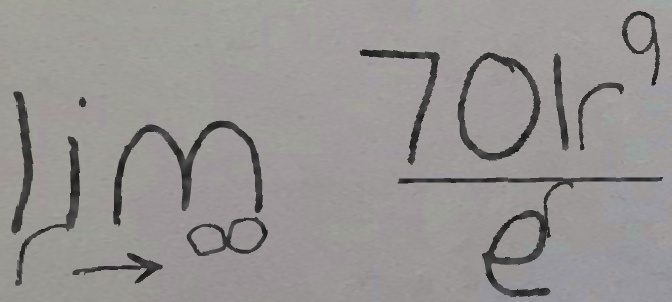 \lim_{r \to \infty} \frac{701r^9}{e^r}